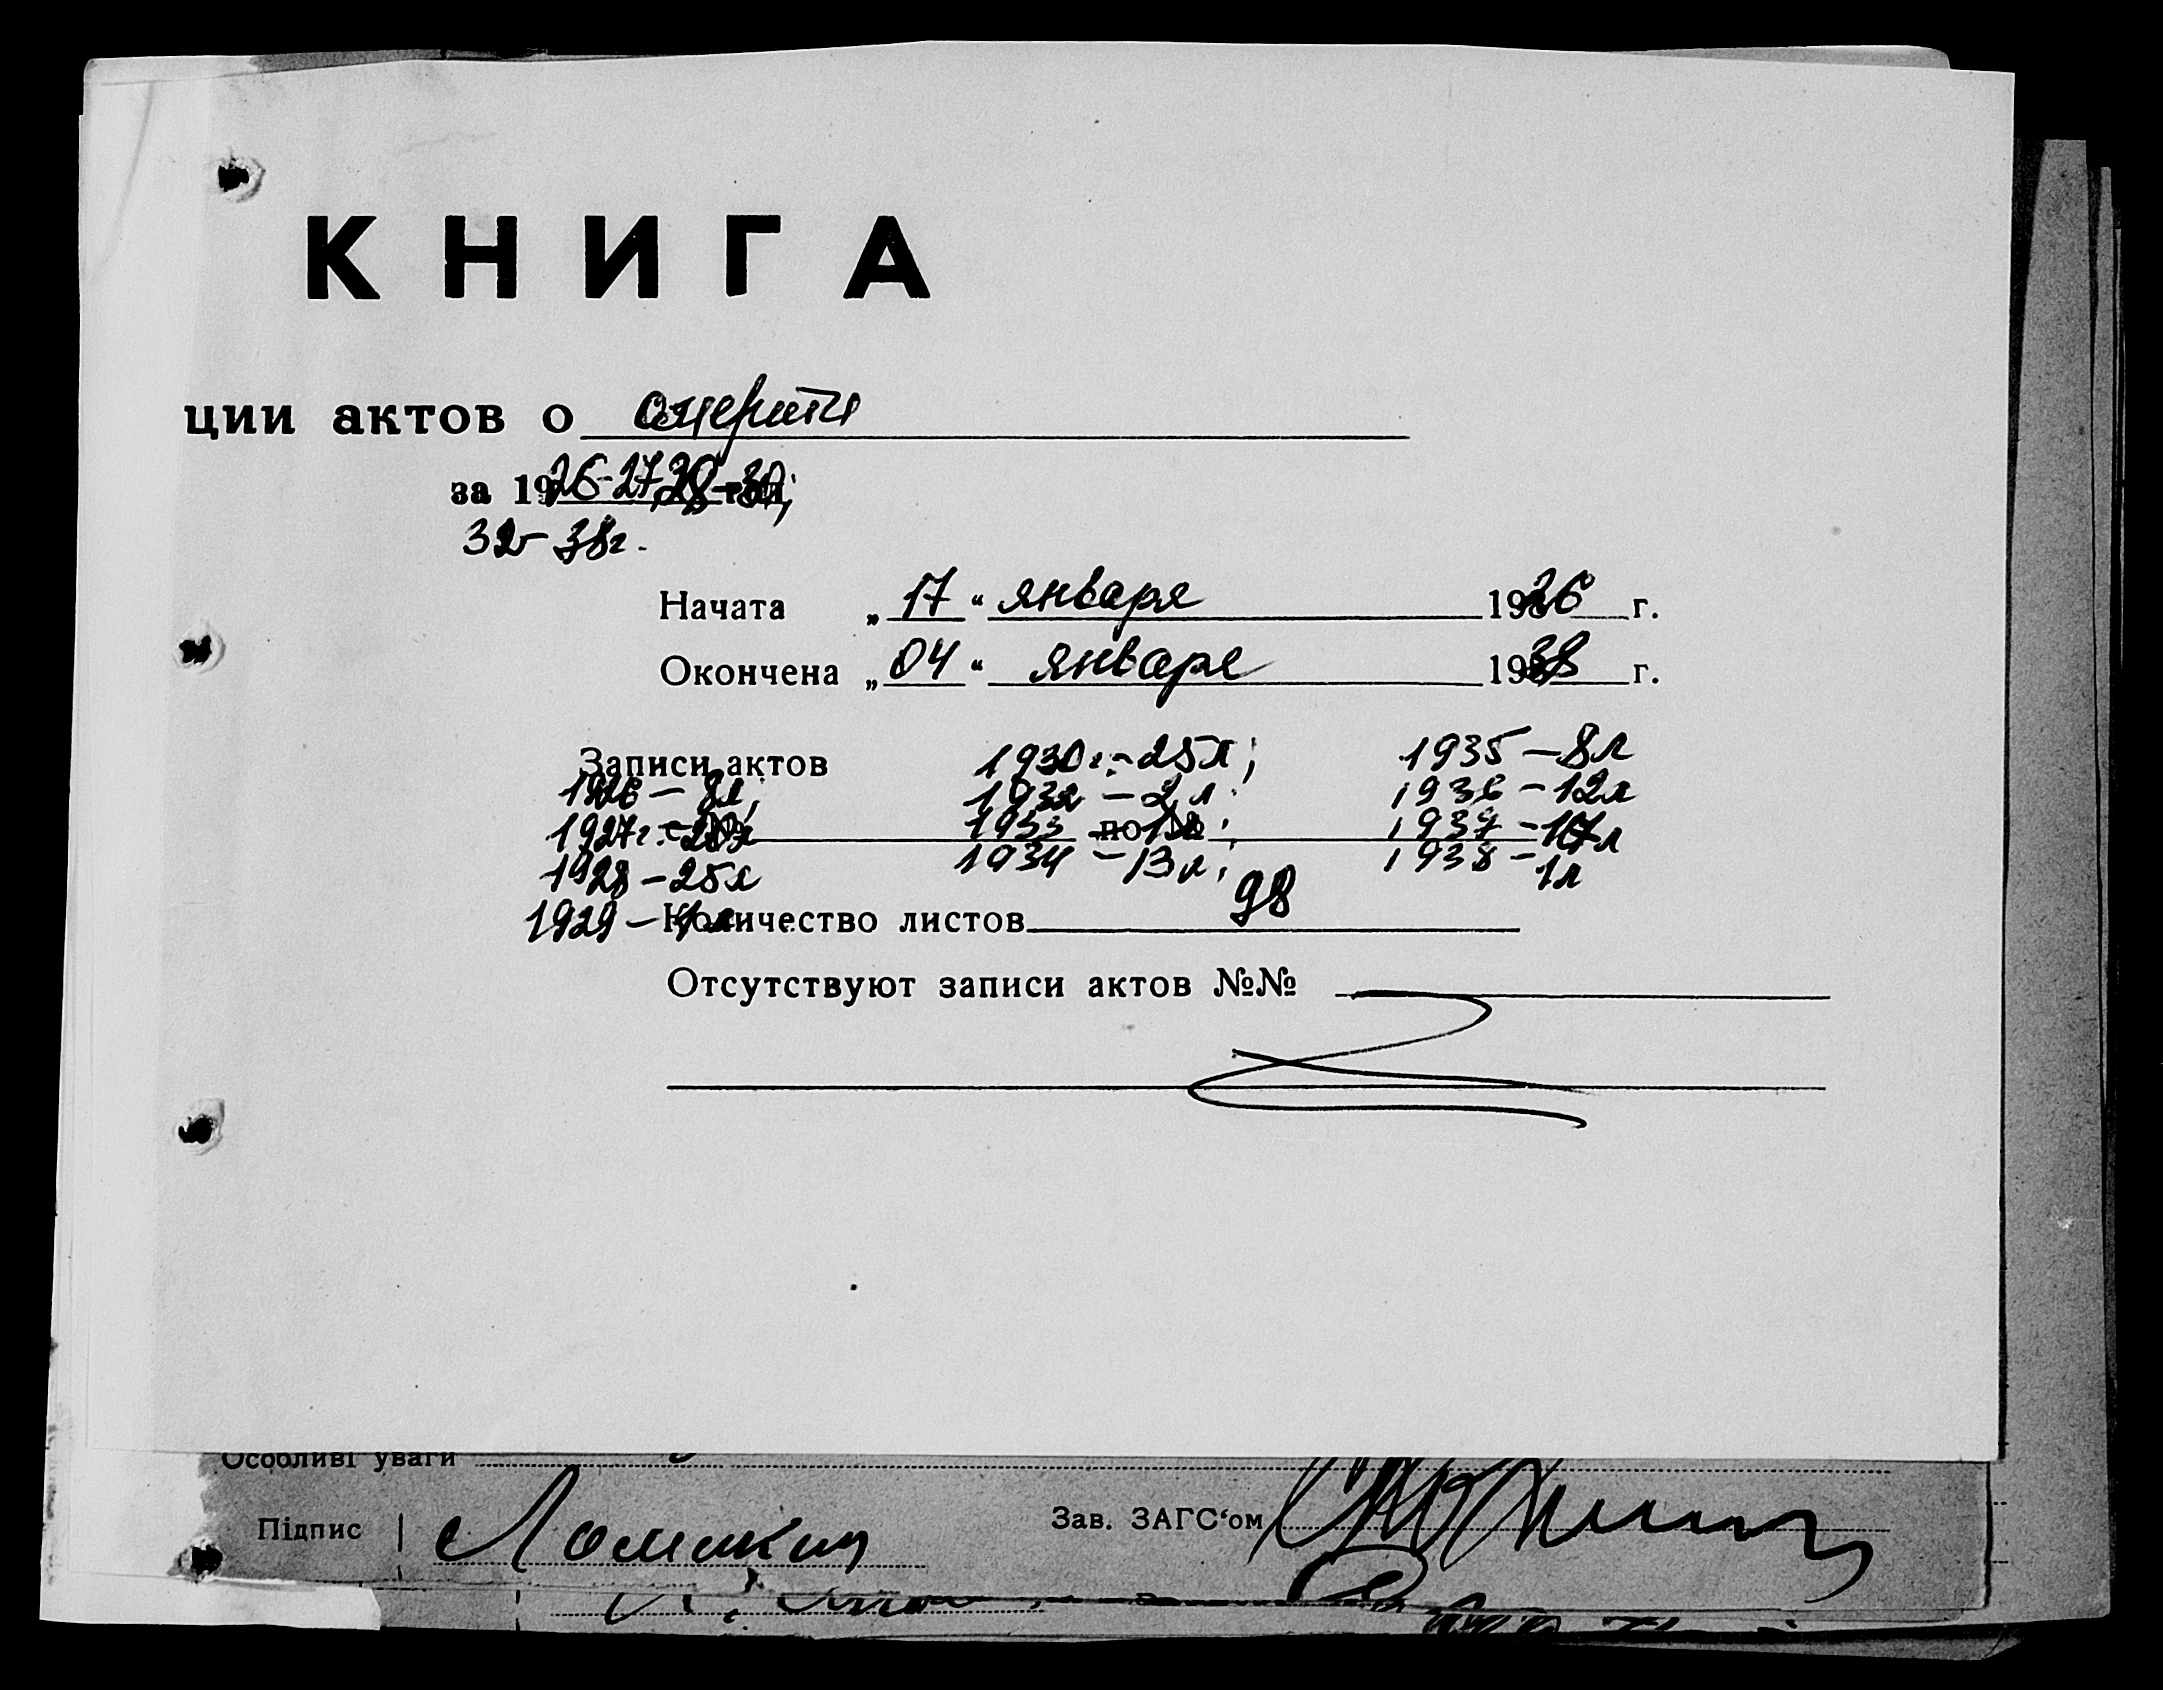 КНИГА
ции актов о смерти
за 1926-27, 28-30;
32-38г.
Начата „17“ января 1926 г.
Окончена „04“ января 1938 г.
Записи актов 1930г.-25л; 1935-8л
1926-8л; 1932-2л. 1936-12л
1927г.- 1933 по № 1937-17л
1928-25л 1934-13л; 1938-1л
1929- Количество листов 98
Отсутствуют записи актов №№
Особливі уваги
Підпис Ломакин Зав. ЗАГС‘ом